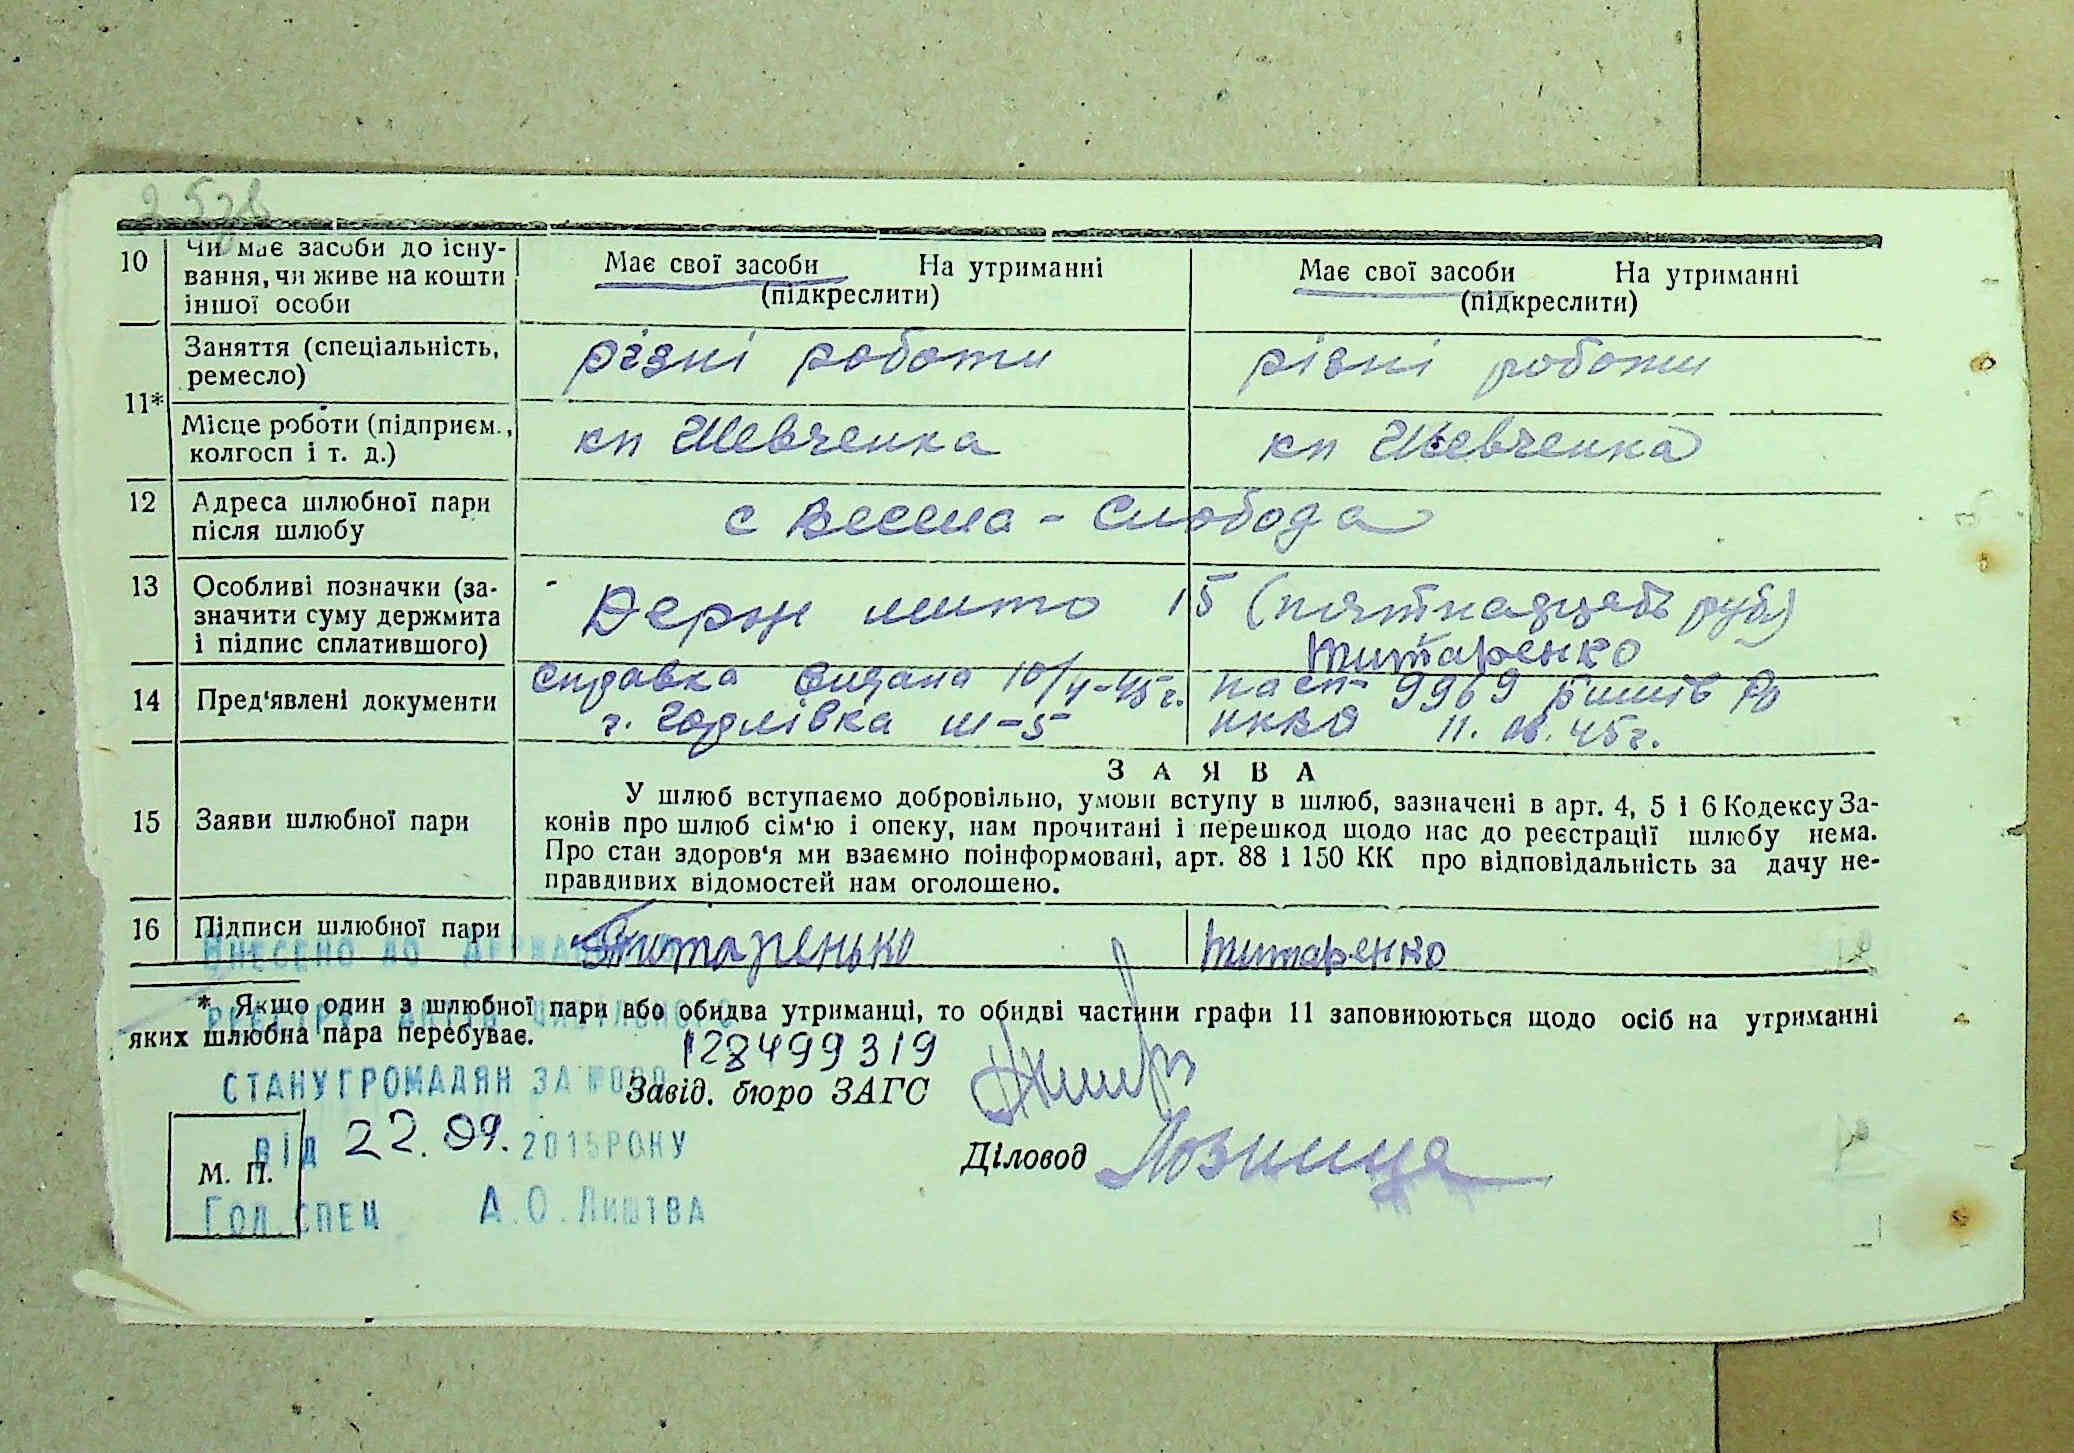 10
Чи має засоби до існу-
вання, чи живе на кошти
іншої особи
Має свої засоби На утриманні
(підкреслити)
Має свої засоби На утриманні
(підкреслити)
11*
Заняття (спеціальність,
ремесло)
різні роботи
різні роботи
Місце роботи (підприєм.,
колгосп і т. д.)
кп Шевченка
кп Шевченка
12
Адреса шлюбної пари
після шлюбу
с Весела - Слобода
13
Особливі позначки (за-
значити суму держмита
і підпис сплатившого)
Держ мито 15 (пятнадцать руб)
Титаренко
14
Пред'явлені документи
справка видана 10/V-45г.
г. Горлівка ш-5
пасп 9969
НКВД 11. 45г.
15
Заяви шлюбної пари
ЗАЯВА
У шлюб вступаємо добровільно, умови вступу в шлюб, зазначені в арт. 4, 5 і 6 Кодексу За-
конів про шлюб сім'ю і опеку, нам прочитані і перешкод щодо нас до реєстрації шлюбу нема.
Про стан здоров'я ми взаємно поінформовані, арт. 88 і 150 КК про відповідальність за дачу не-
правдивих відомостей нам оголошено.
16
Підписи шлюбної пари
Титаренько
Титаренко
ВНЕСЕНО ДО ДЕРЖАВНОГО
* Якщо один з шлюбної пари або обидва утриманці, то обидві частини графи 11 заповнюються щодо осіб на утриманні
яких шлюбна пара перебуває.
РЕЄСТРУ АКТІВ ЦИВІЛЬНОГО
128499319
СТАНУ ГРОМАДЯН ЗА
Завід. бюро ЗАГС
ВІД 22.09.2015 РОКУ
М. П.
Діловод Лозниця
ГОЛ.СПЕЦ А.О.ЛИШТВА